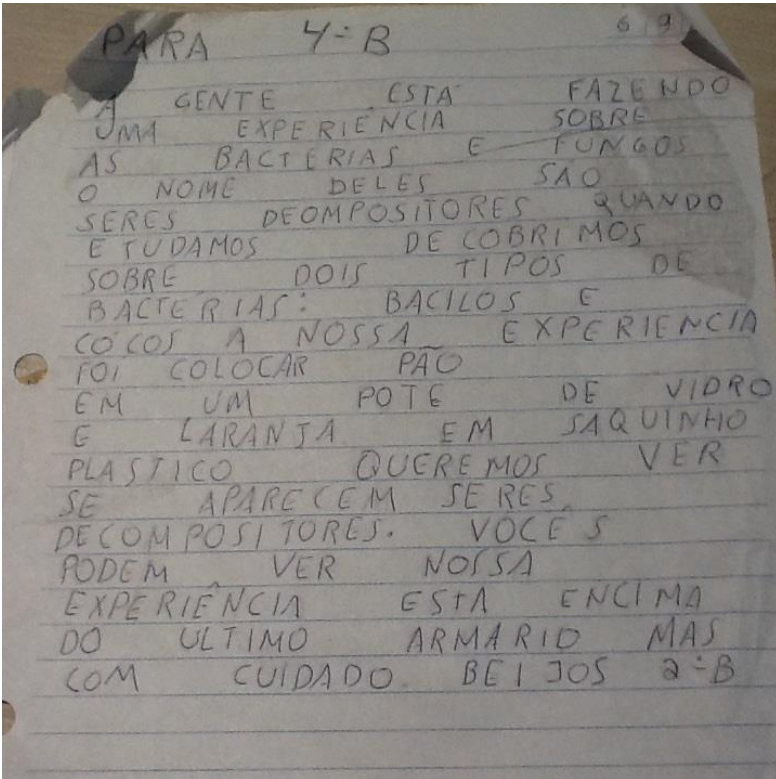 PARA 4ºB 6 9
A GENTE ESTÁ FAZENDO
UMA EXPERIÊNCIA SOBRE
AS BACTERIAS E FUNGOS
O NOME DELES SÃO
SERES DEOMPOSITORES QUANDO
ETUDAMOS DECOBRIMOS
SOBRE DOIS TIPOS DE
BACTERIAS: BACILOS E
CÓCOS A NOSSA EXPERIENCIA
FOI COLOCAR PÃO
EM UM POTE DE VIDRO
E LARANJA EM SAQUINHO
PLASTICO QUEREMOS VER
SE APARECEM SERES
DECOMPOSITORES. VOCÊS
PODEM VER NOSSA
EXPERIÊNCIA ESTA ENCIMA
DO ULTIMO ARMARIO MAS
COM CUIDADO. BEIJOS 2ºB